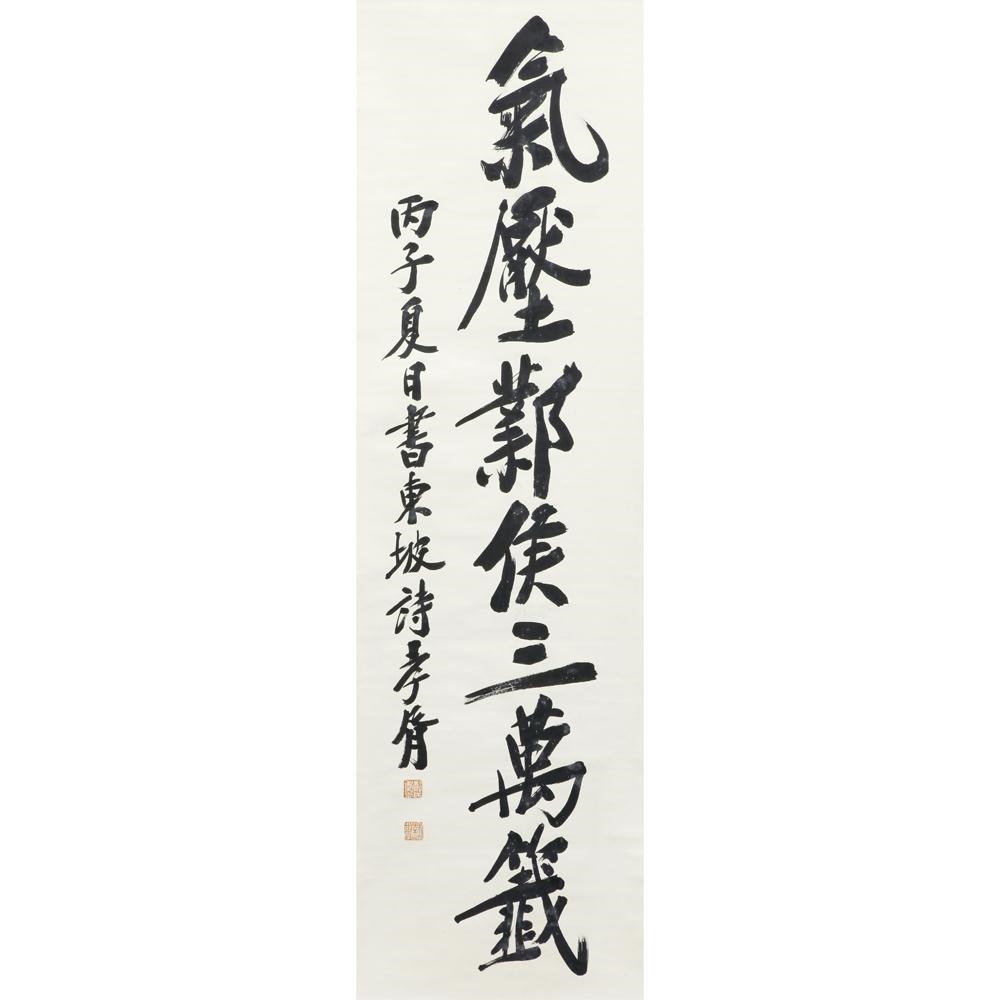 氣壓鄴侯三萬籤
丙子夏日書東坡詩孝胥